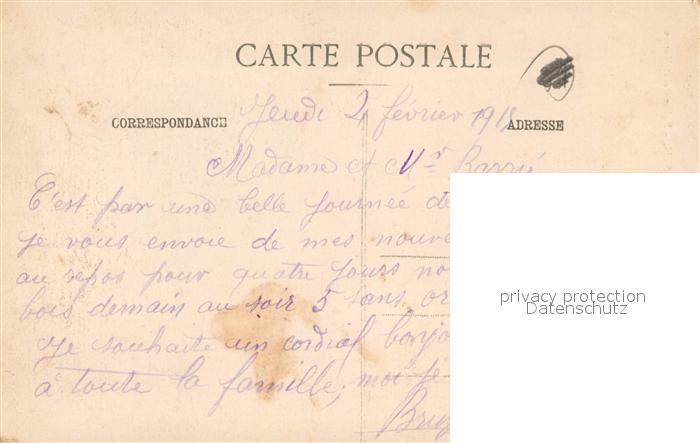 CARTE POSTALE
CORRESPONDANCE
ADRESSE
Jeudi 4 février 191
Madame et Mr
C'est par une belle journée de
je vous envoie de mes nouve
au repos pour quatre jours no
bois demain au soir 5 sans or
Je souhaite un cordial bonjo
à toute la famille, moi je
privacy protection
Datenschutz